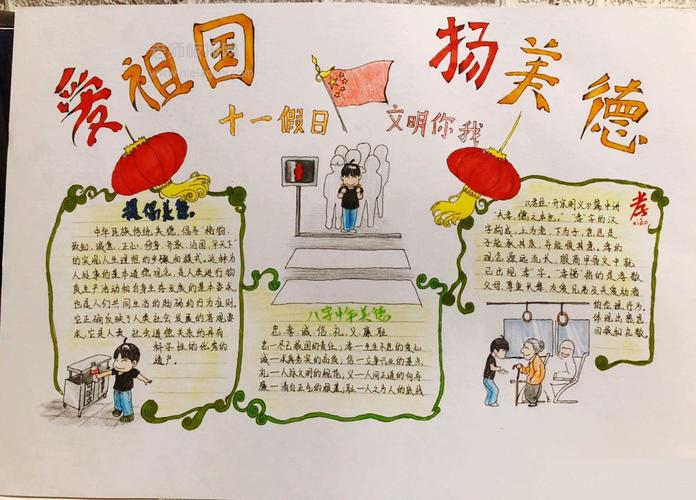 爱祖国
扬美德
十一假日
文明你我
提倡美德
中华民族传统美德,倡导格物、
致知、诚意、正心、修身、齐家、治国、平天下
的实现人生理想的步骤和模式。这种为
人处事的基本道德观念,是人类进行物
质生产活动和自身生存发展的基本要求
也是人们共同生活的起码的行为准则。
它正确反映了人类社会发展的客观要
求,它是人类社会道德关系的具有
科学性的优秀的
遗产。
八字中华美德
忠、孝、诚、信、礼、义、廉、耻
忠一尽己报国的责任;孝一生生不息的爱心
诚一求真务实的品质;信一立身兴业的基点
礼一人际文明的规范;义一人间正道的向导
廉一清白正气的根基;耻一人之为人的底线
孝
xiào
《孝经·开宗明义》篇中讲
“夫孝,德之本也。”“孝”字的汉
字构成,上为老、下为子,意思是
子能承其亲,并能顺其意。孝的
观念源远流长,殷商甲骨文中就
已出现“孝”字。“孝悌”指的是孝敬
父母、尊重兄长、友爱兄弟及关爱幼者
的伦理行为。
体现出感恩
回报和礼敬。